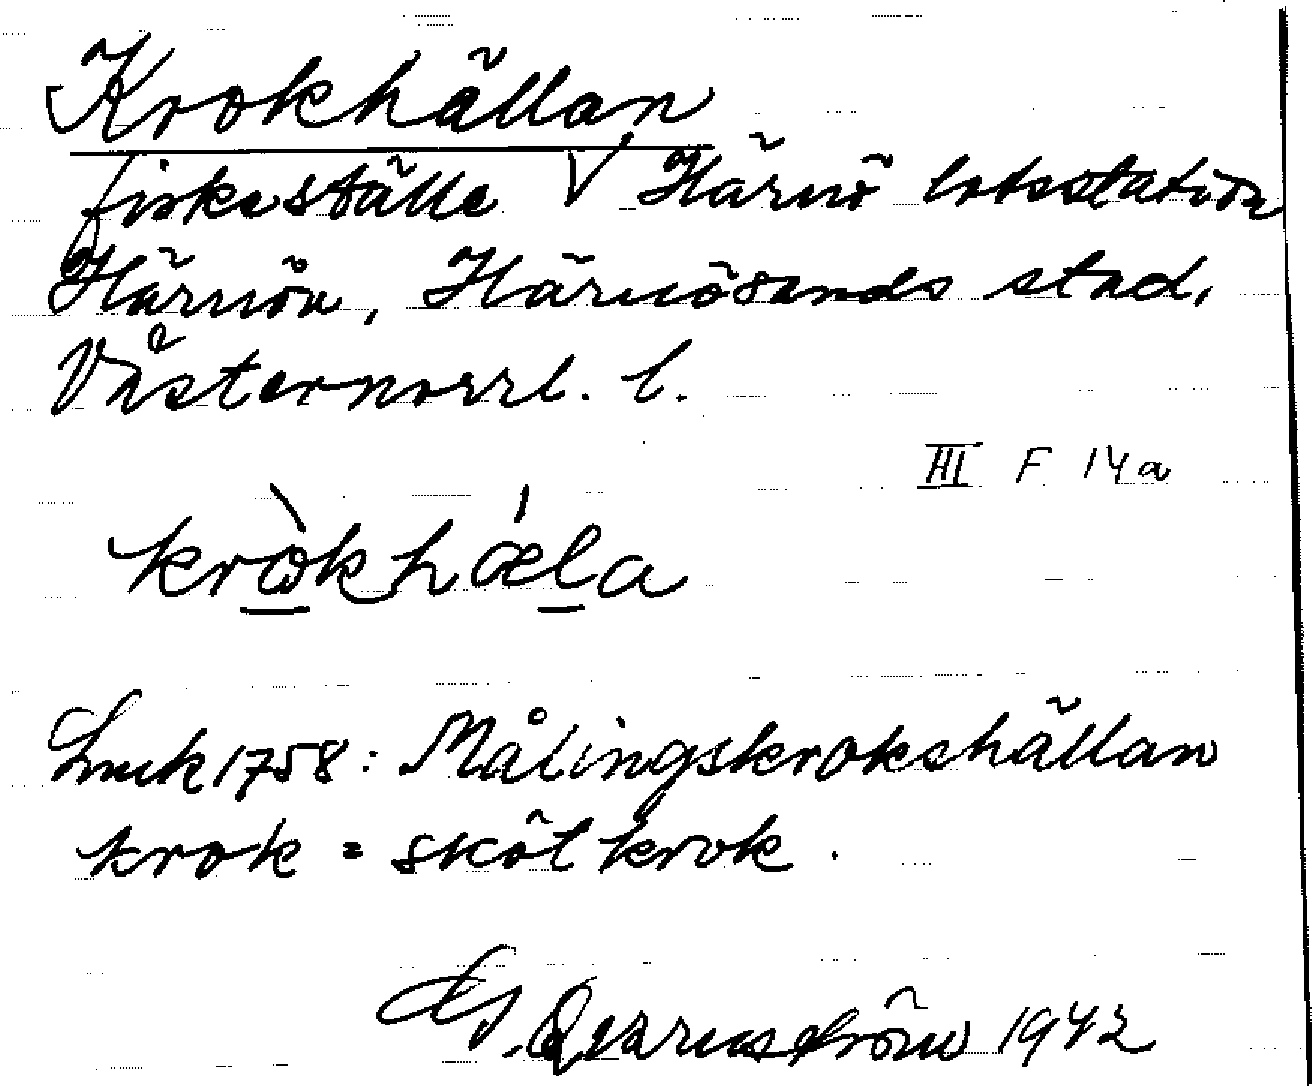 Krokhällan
fiskeställe V Härnö lotsstation
Härnön, Härnösands stad,
Västernorrl. l.
III F 14a
kròkhǽla
1758: Målingskrokshällan
krok = skötkrok.
Qvarnström 1942